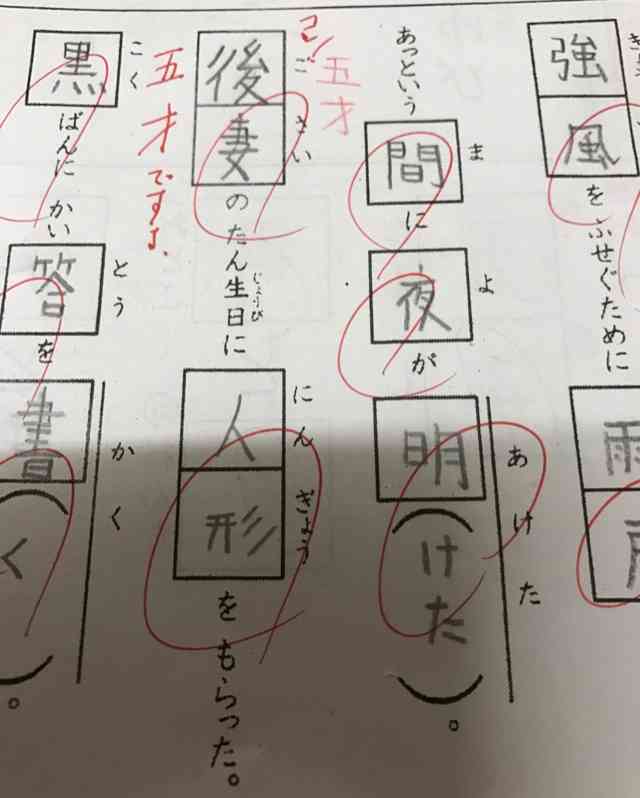 強風をふせぐために雨
ま よ あけた
あっという間に夜が明(けた)。
五才
ごさい にんぎょう
じょうび
後妻のたん生日に人形をもらった。
五才ですよ
こく とう かく
黒ばんにかい答を書(く)。